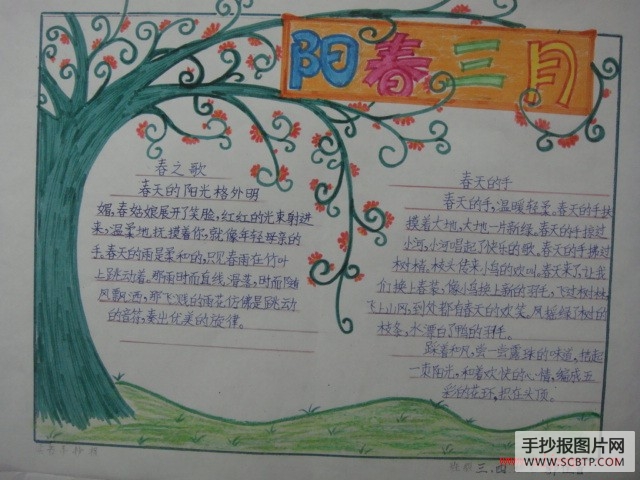 阳春三月
春之歌
春天的阳光格外明
媚,春姑娘展开了笑脸,红红的光束射进
来,温柔地抚摸着你,就像年轻母亲的
手。春天的雨是柔和的,只见春雨在竹叶
上跳动着。那雨时而直线滑落,时而随
风飘洒,那飞溅的雨花仿佛是跳动
的音符,奏出优美的旋律。
春天的手
春天的手,温暖轻柔。春天的手抚
摸着大地,大地一片新绿。春天的手掠过
小河,小河唱起了快乐的歌。春天的手拂过
树梢。枝头传来小鸟的欢叫。春天来了,让我
们换上春装,像小鸟换上新的羽毛,飞过树林,
飞上山冈,到处都有春天的欢笑。风摇绿了树的
枝条,水漂白了鸭的羽毛。
踩着和风,尝一些露珠的味道,拈起
一束阳光,和着欢快的心情,编成五
彩的花环,抛在头顶。
三.四
手抄报图片网
WWW.SCBTP.COM